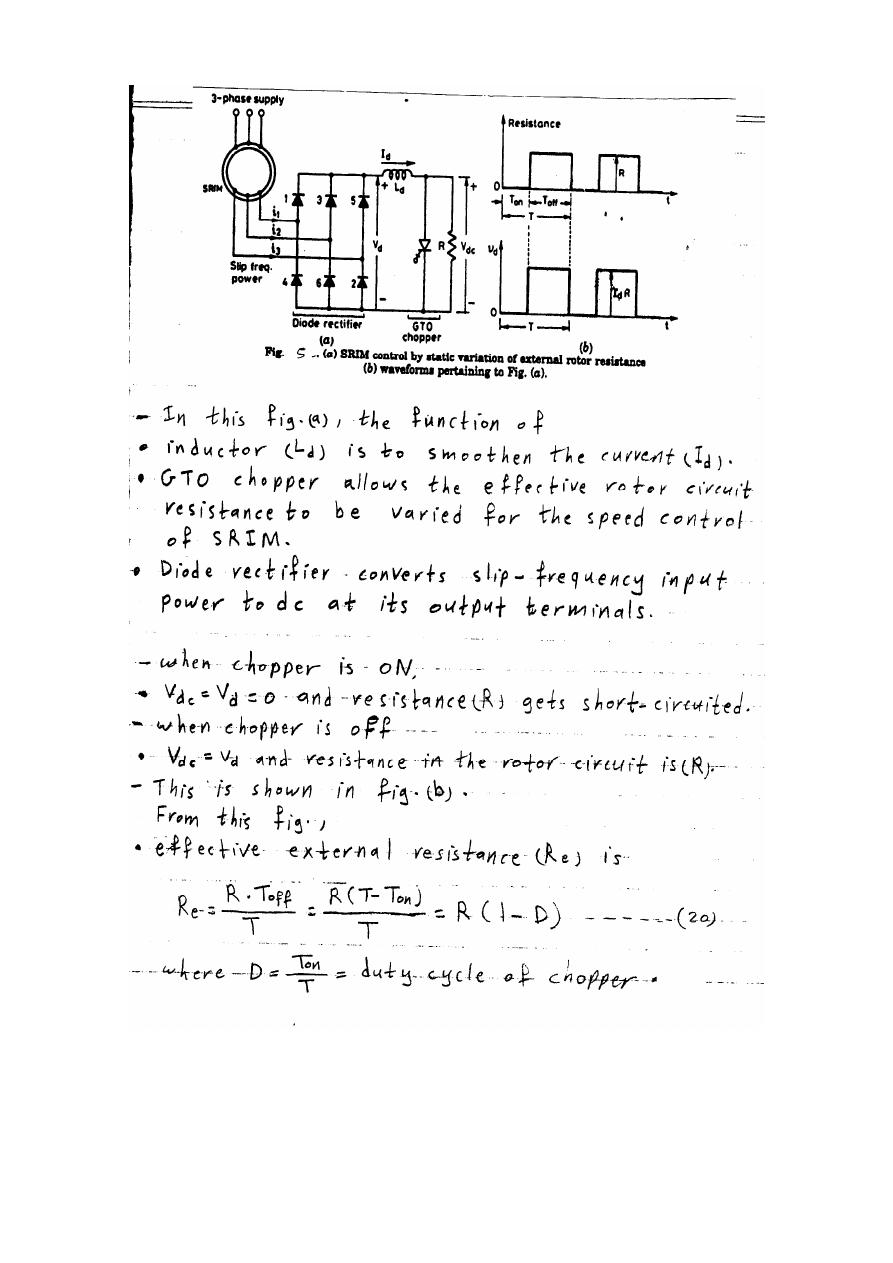 3-phase supply
SRIM
i1
i2
i3
Slip freq.
power
1
3
5
4
6
2
Id
+ Ld
Vd
-
R
+
Vdc
-
Diode rectifier
GTO
chopper
(a)
Resistance
R
0
Ton
Toff
T
t
vd
IdR
0
T
t
(b)
Fig. 5 .. (a) SRIM control by static variation of external rotor resistance
(b) waveforms pertaining to Fig. (a).
- In this fig.(a), the function of
• inductor (Ld) is to smoothen the current (Id).
• GTO chopper allows the effective rotor circuit
resistance to be varied for the speed control
of SRIM.
• Diode rectifier converts slip-frequency input
power to dc at its output terminals.
- when chopper is ON,
• Vdc = Vd = 0 and resistance (R) gets short-circuited.
- when chopper is off
• Vdc = Vd and resistance in the rotor circuit is (R).
- This is shown in fig.(b).
From this fig.,
• effective external resistance (Re) is
Re = R . Toff / T = R (T - Ton) / T = R (1 - D) ------(20)
where D = Ton / T = duty cycle of chopper.